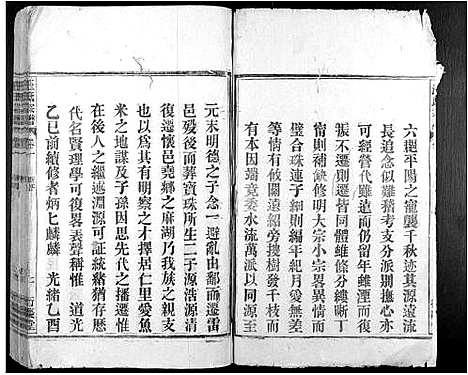 六觀平陽之寵襲千秋迹其源遠流
長追念似難稽考支分派別撫心亦
可經營代雖遠而仍留年雖湮而復
振不遷則遷皆同體維條分縷晰丁
惰則補缺修明大宗小宗畧異情而
璧合珠連子則編年紀月愛無差等
情有攸關遠紹旁搜樹發千枝而
有本因端竟委水流萬派以同源至
元末明德之子念一避亂由鄱而遷雷
邑歿後與葬寶珠所生二子源浩源清
復遷懷邑堯鄉之麻湖乃我族之親支
也以為其有明察之才擇居仁里愛魚
米之地謀及子孫因思先代之播遷惟
在後人之繼述淵源可証統緒猶存歷
代名賢理學可復畧表聲稱惟 道光
乙巳前續修者炳七麟麟 光緒乙酉